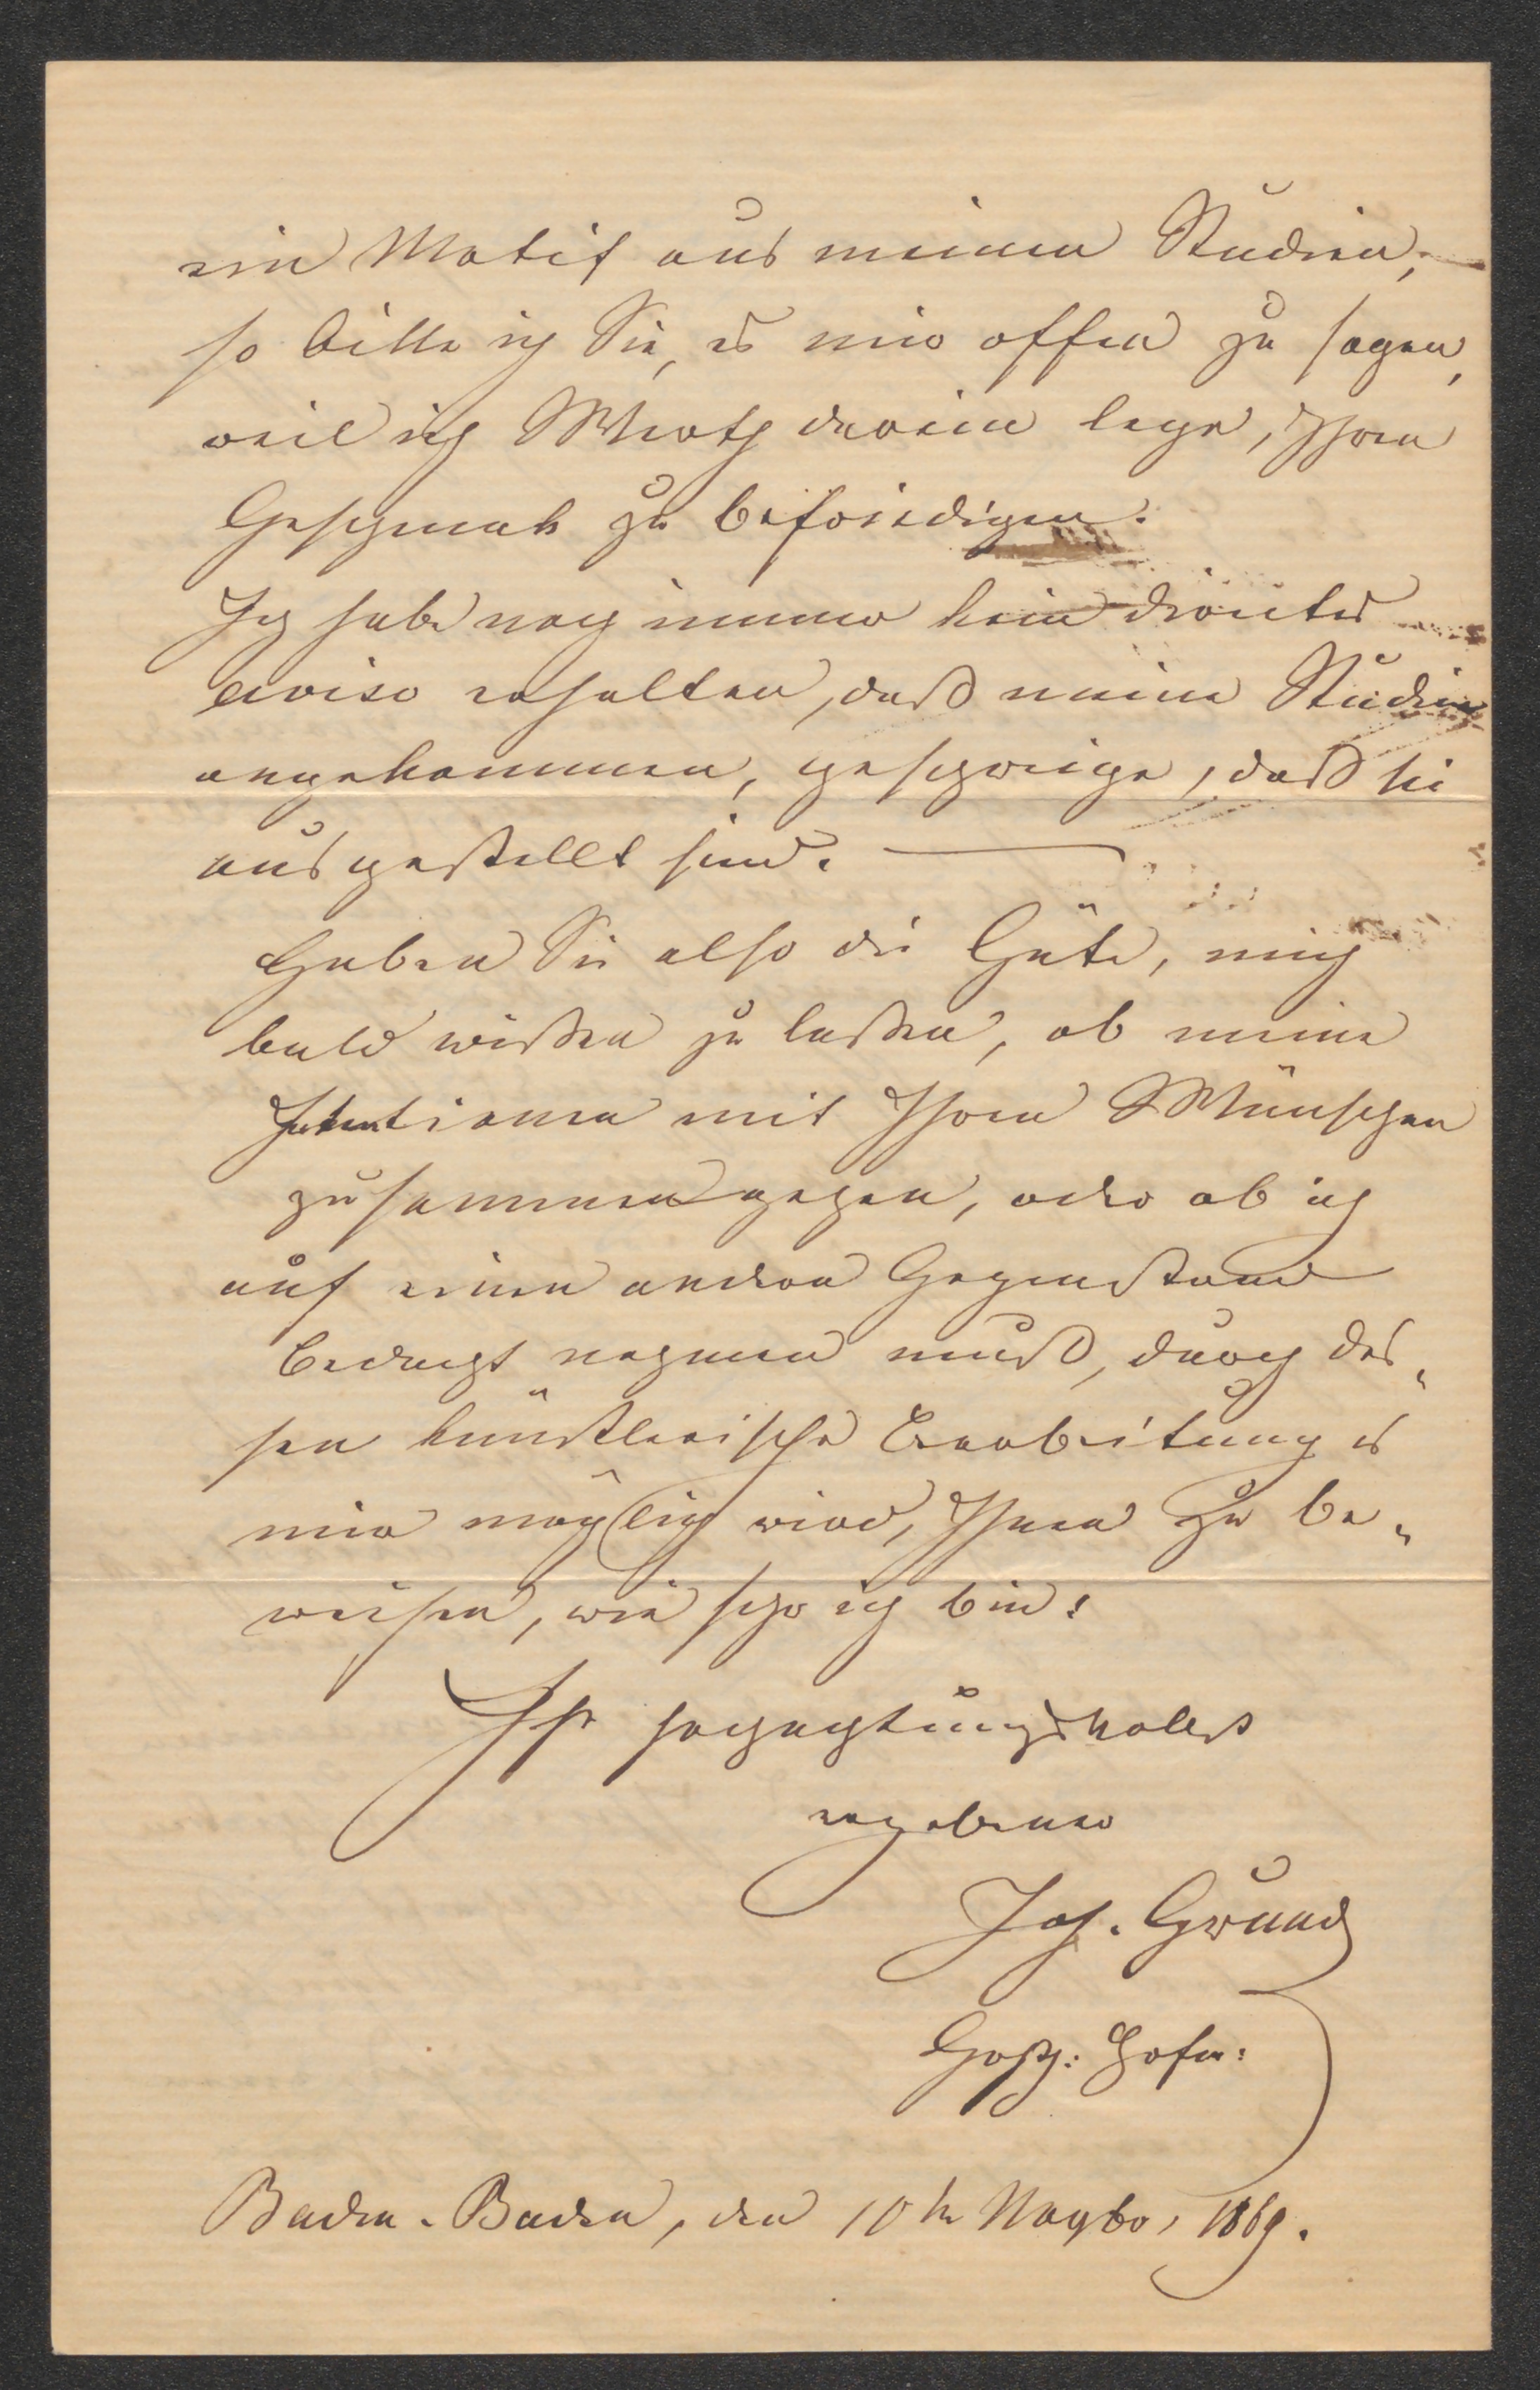 ein Motif aus meinen Studien,
so bitte ich Sie, es mir offen zu sagen,
weil ich Werth darein lege, Ihren
Geschmak zu befriedigen.
Ich habe noch immer kein directes
aviso erhalten, daß meine Studien
angekommen, geschweige, daß sie
ausgestellt sind. —
Haben Sie also die Güte, mich
bald wißen zu laßen, ob meine
Intentionen mit Ihren Wünschen
zusammengehen, oder ob ich
auf einen andern Gegenstand
bedacht nehmen muß, durch des„
sen künstlerische Bearbeitung es
mir möglich wird, Ihnen zu be„
weisen, wie sehr ich bin:
Ihr hochachtungsvollst
ergebener
Joh. Grund
Hofm:
Baden-Baden, den 10t Novbr, 1869.